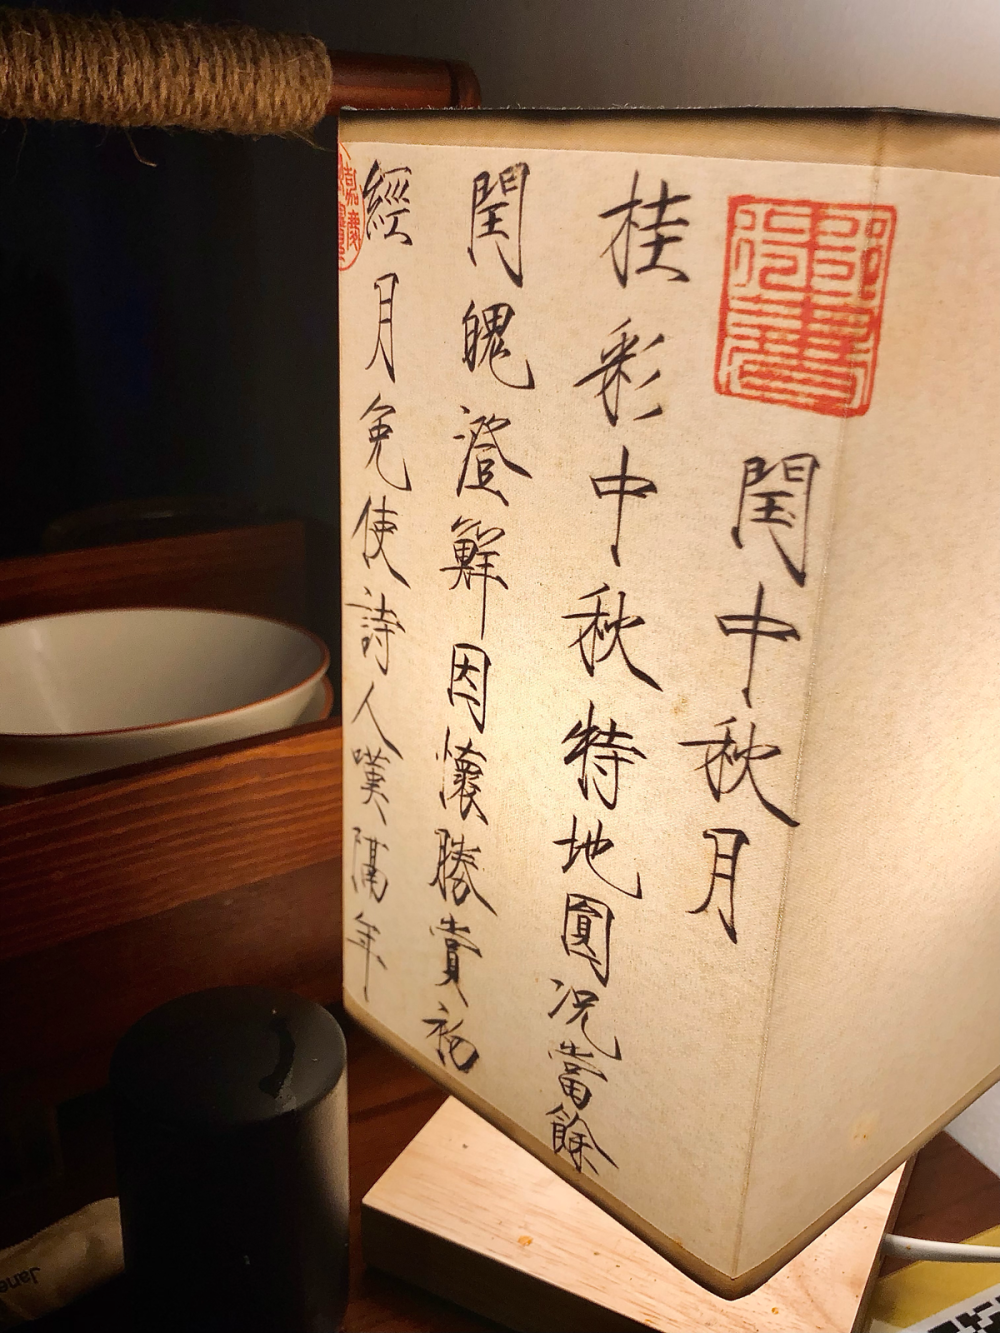 閏中秋月
桂彩中秋特地圓況當餘
閏魄澄鮮因懷勝賞初
經月免使詩人嘆隔年
嘉慶
Jane